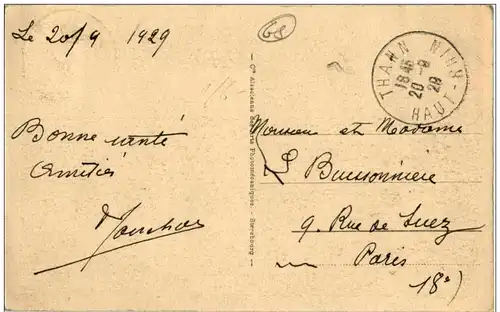 Le 20/9 1929
Bonne santé
Amitiés
THANN
18 45
20 - 9
29
HAUT-RHIN
Monsieur et Madame
L Buissonniere
9. Rue de Suez
Paris
18e)